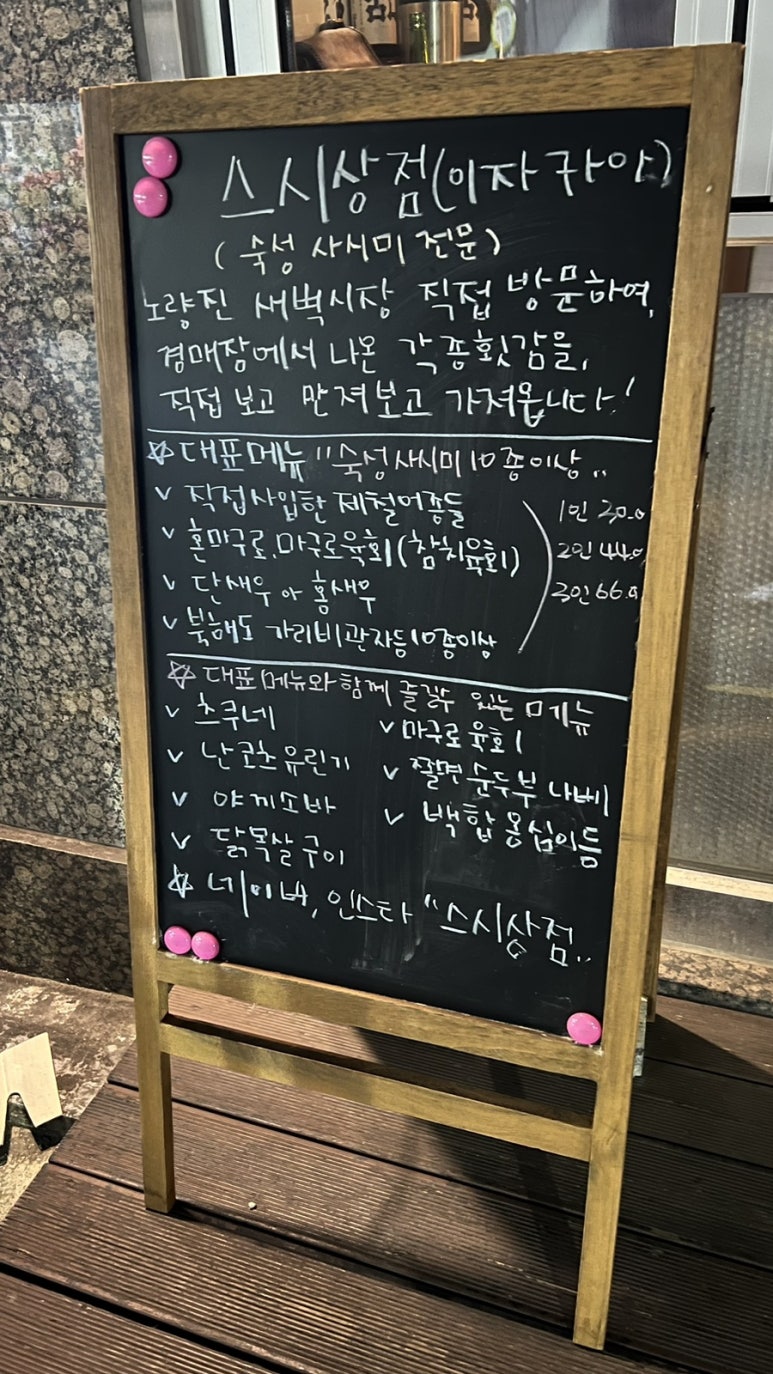 스시상점(이자카야)
(숙성 사시미 전문)
노량진 새벽시장 직접 방문하여,
경매장에서 나온 각종횟감을,
직접 보고 만져보고 가져옵니다!
☆ 대표메뉴 "숙성사시미10종이상..
v 직접사입한 제철어종들
1인 30.0
v 혼마구로.마구로육회(참치육회)
2인 44.0
v 단새우 아 홍새우
3인 66.0
v 북해도 가리비관자등10종이상
☆ 대표메뉴와 함께 즐길수 있는 메뉴
v 츠쿠네
v 마구로 육회
v 난코츠유린기
v 쫄면순두부 나베
v 야끼소바
v 백합옹심이등
v 닭목살구이
☆ 네이버, 인스타 "스시상점..